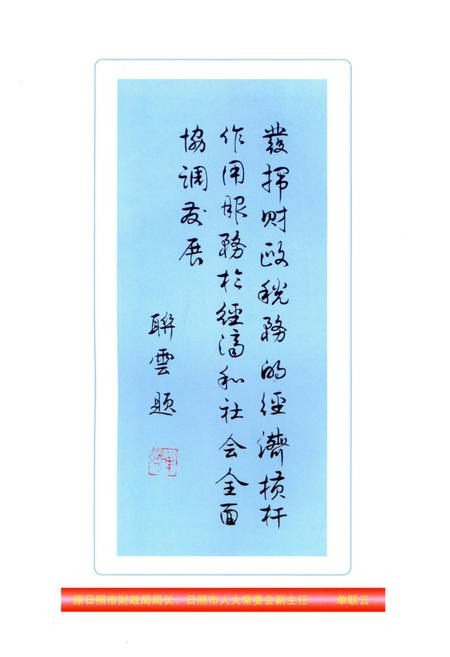 發揮财政税務的經濟横杆
作用服務於經濟和社会全面
協调发展
聯雲题
原日照市财政局局长、日照市人大常委会副主任 单联云